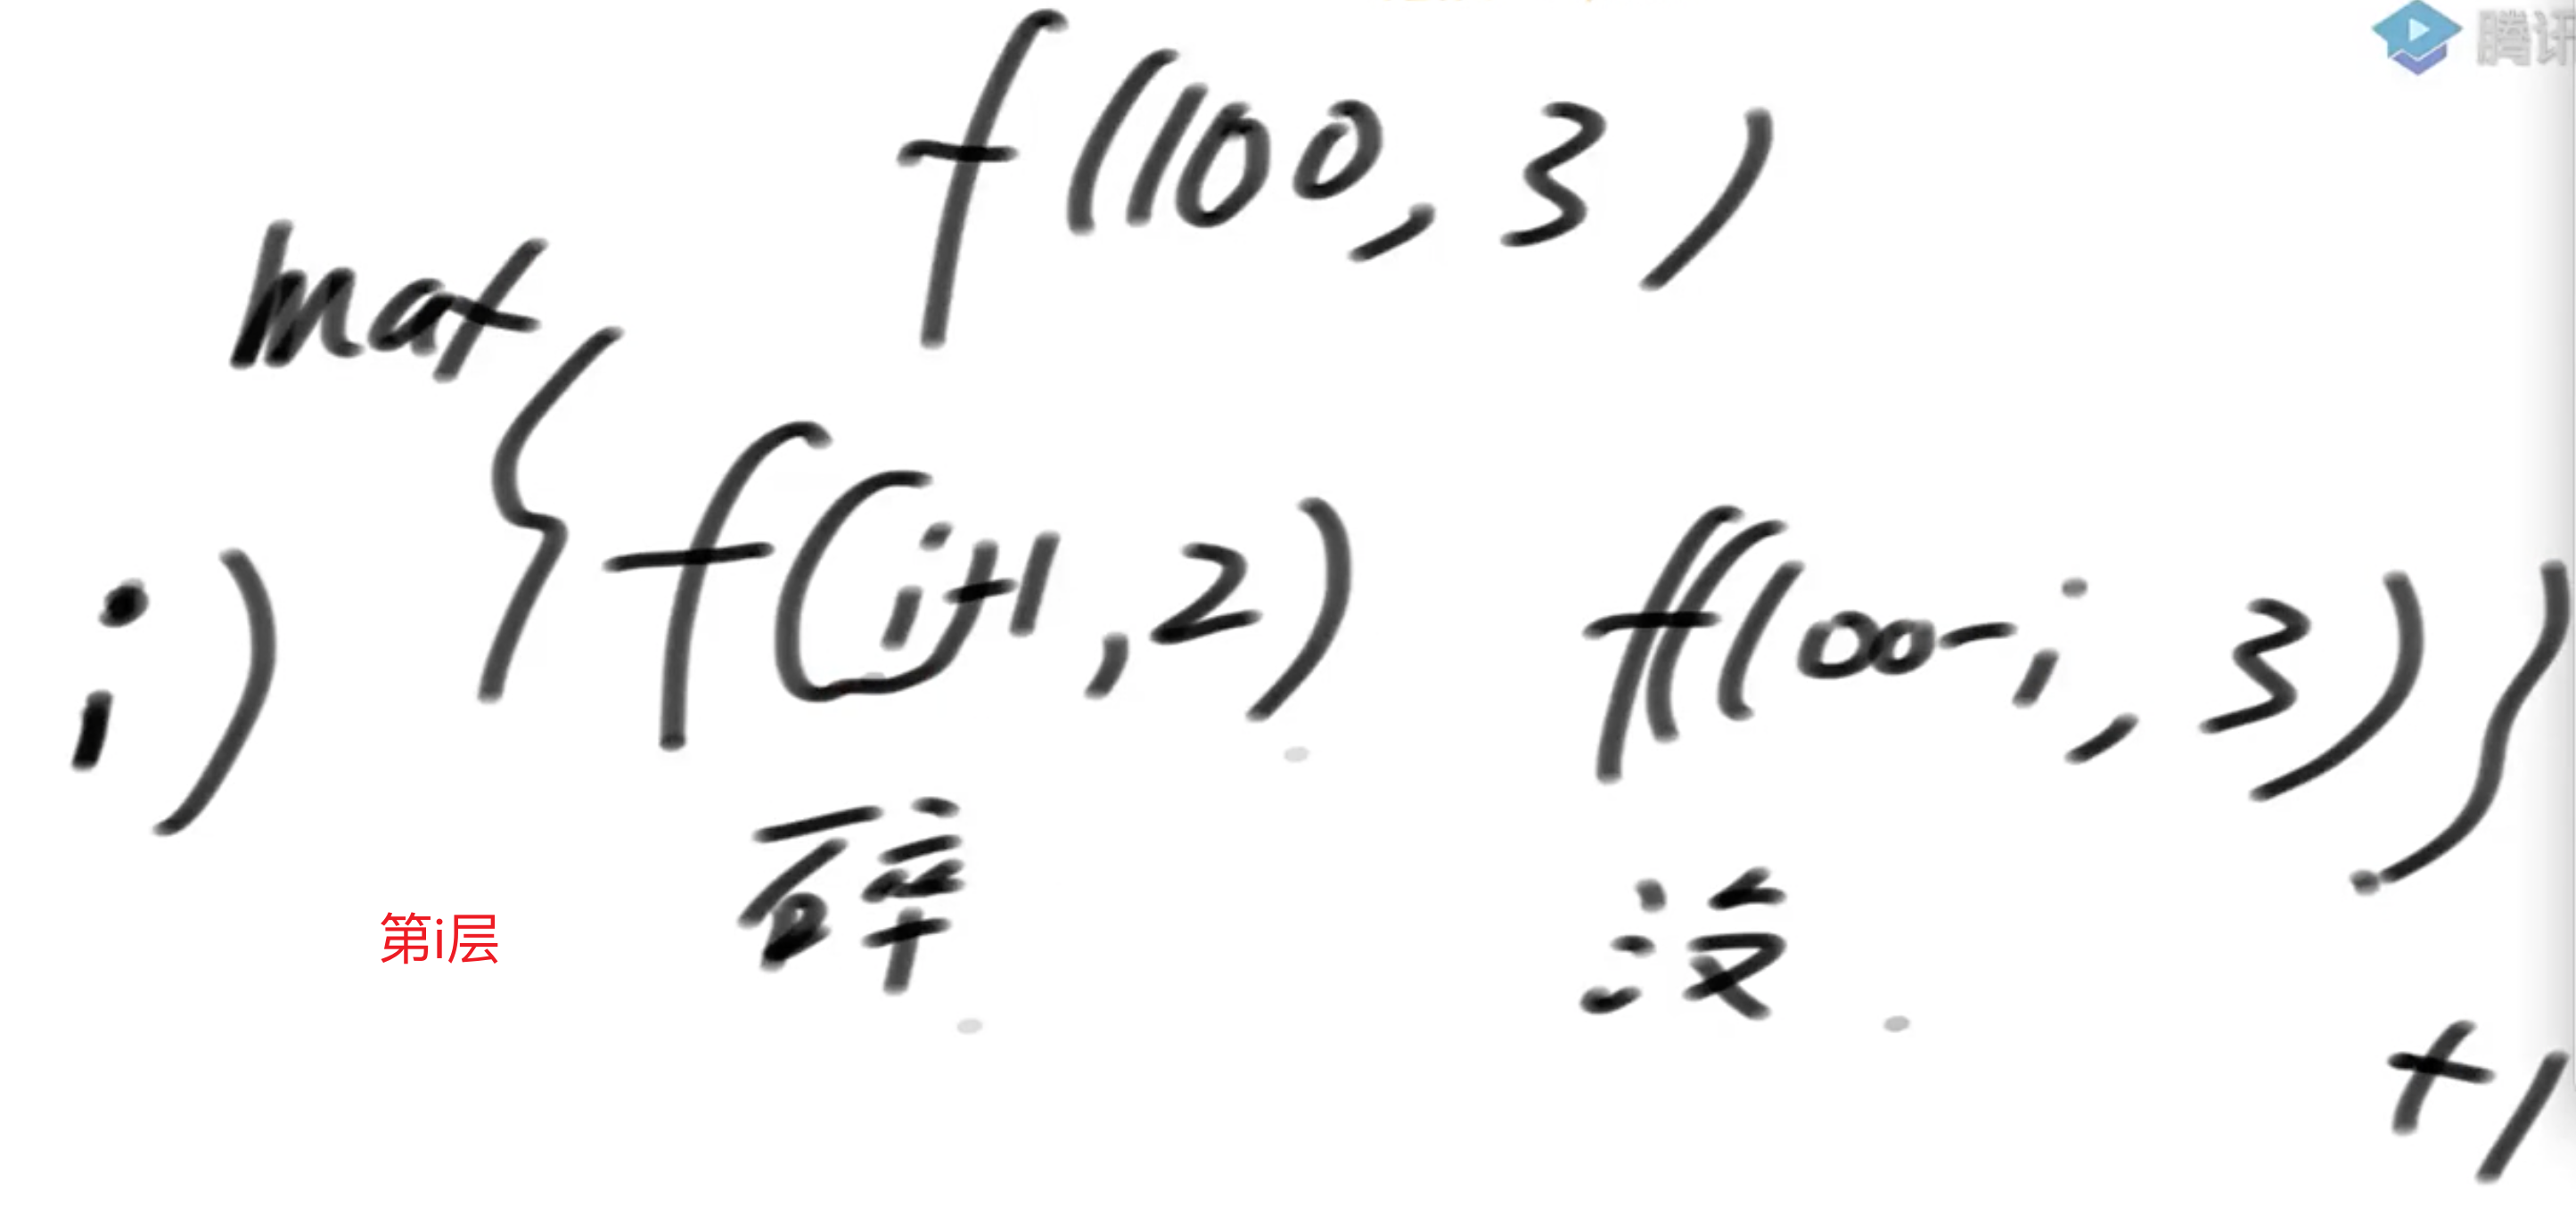 腾讯
f(100,3)
max
i) { f(i+1,2) f(100-i,3) }
碎 没
第i层
+1